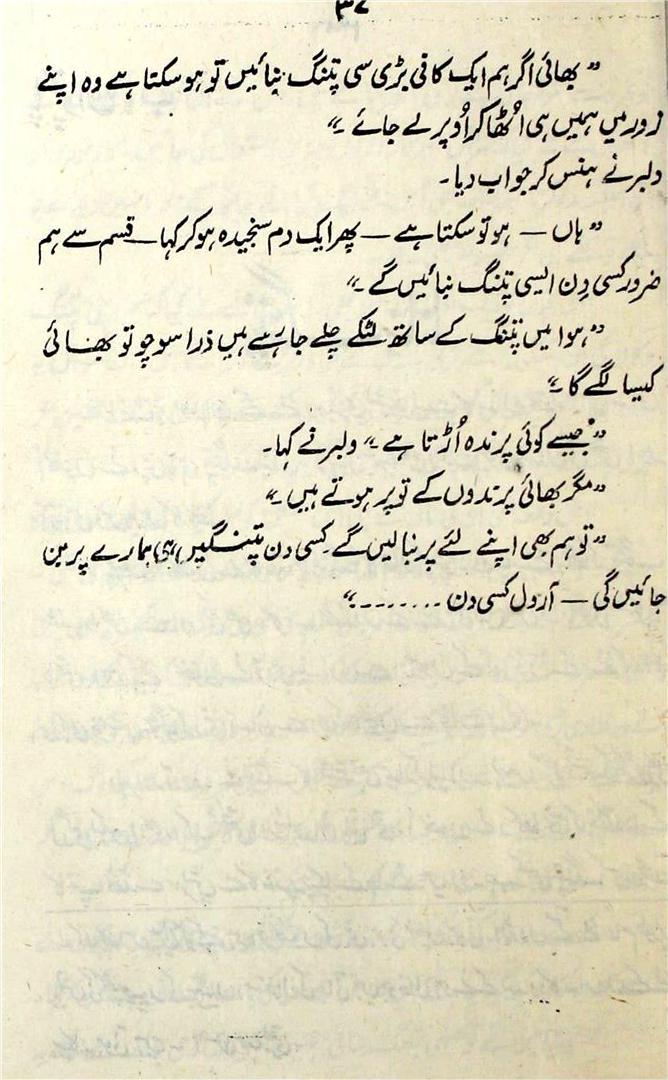 ۳۷
”بھائی اگر ہم ایک کافی بڑی سی پتنگ بنائیں تو ہو سکتا ہے وہ اپنے
زور میں ہمیں ہی اُٹھا کر اُوپر لے جائے۔“
دلبر نے ہنس کر جواب دیا۔
”ہاں — ہو تو سکتا ہے — پھر ایک دم سنجیدہ ہو کر کہا — قسم سے ہم
ضرور کسی دِن ایسی پتنگ بنائیں گے۔“
”ہوا میں پتنگ کے ساتھ لٹکے چلے جا رہے ہیں ذرا سوچو تو بھائی
کیسا لگے گا۔“
”جیسے کوئی پرندہ اُڑتا ہے۔“ دلبر نے کہا۔
”مگر بھائی پرندوں کے تو پر ہوتے ہیں۔“
”تو ہم بھی اپنے لئے پر بنا لیں گے۔ کسی دن پتنگیں ہی ہمارے پر بن
جائیں گی — آرول کسی دن ........“